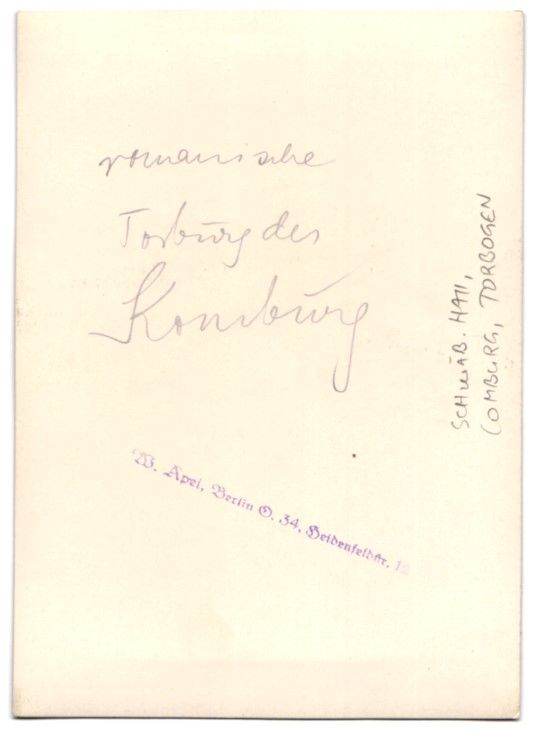 romanische
Torburg der
Komburg
SCHWÄB. HALL,
COMBURG, TORBOGEN
W. Apel, Berlin O. 34, Heidenfeldstr. 12